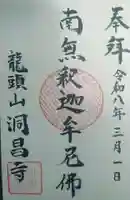 奉拝
令和八年三月一日
南無釋迦牟尼佛
龍頭山 洞昌寺